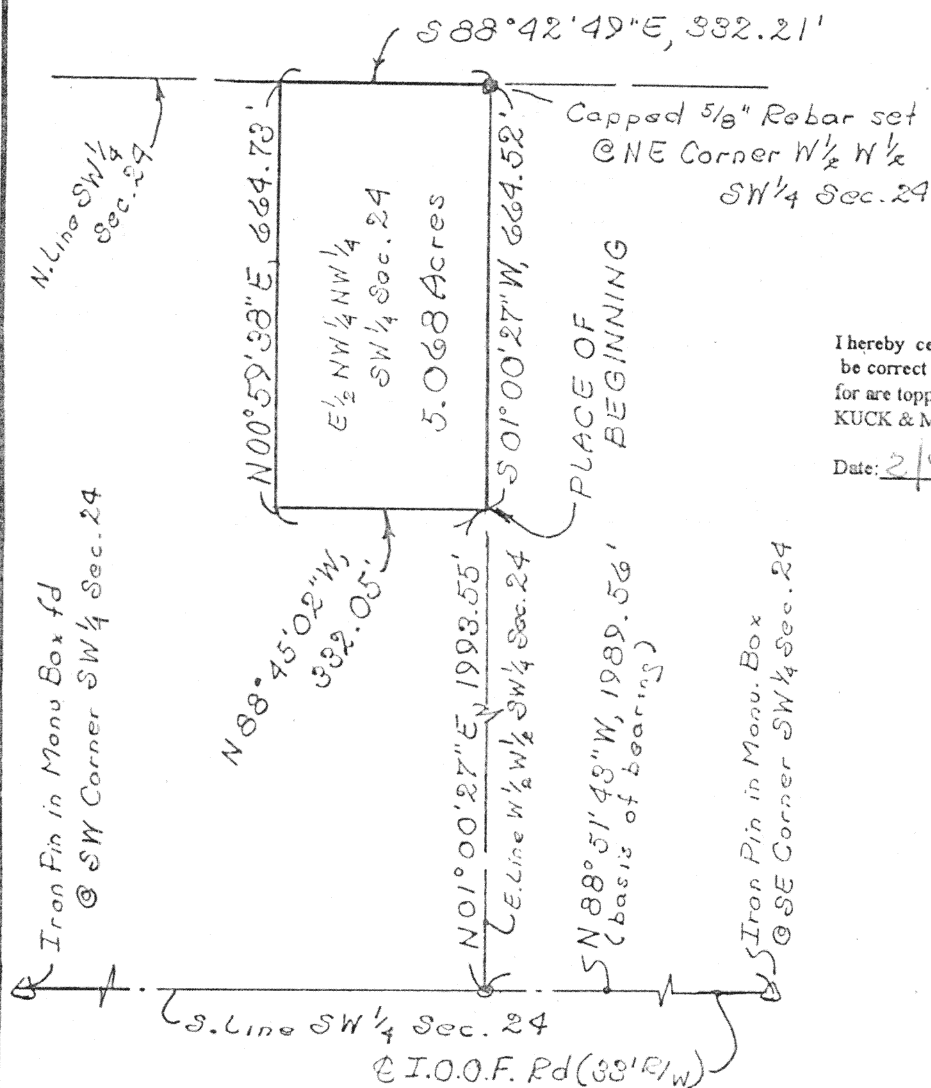 S 88°42'49"E, 332.21'
N. Line SW 1/4
Sec. 24
Capped 5/8" Rebar set
@ NE Corner W 1/2 W 1/2
SW 1/4 Sec. 24
N00°59'38"E, 664.73'
E 1/2 NW 1/4 NW 1/4
SW 1/4 Sec. 24
5.068 Acres
S01°00'27"W, 664.52'
PLACE OF
BEGINNING
I hereby ce
be correct
for are topp
KUCK & M
Date: 2/
N 88°45'02"W,
332.05'
Iron Pin in Monu Box fd
@ SW Corner SW 1/4 Sec. 24
N01°00'27"E, 1993.55'
E. Line W 1/2 W 1/2 SW 1/4 Sec. 24
N 88°51'43"W, 1989.56'
(basis of bearing)
Iron Pin in Monu. Box
@ SE Corner SW 1/4 Sec. 24
S. Line SW 1/4 Sec. 24
℄ I.O.O.F. Rd (33' R/W)